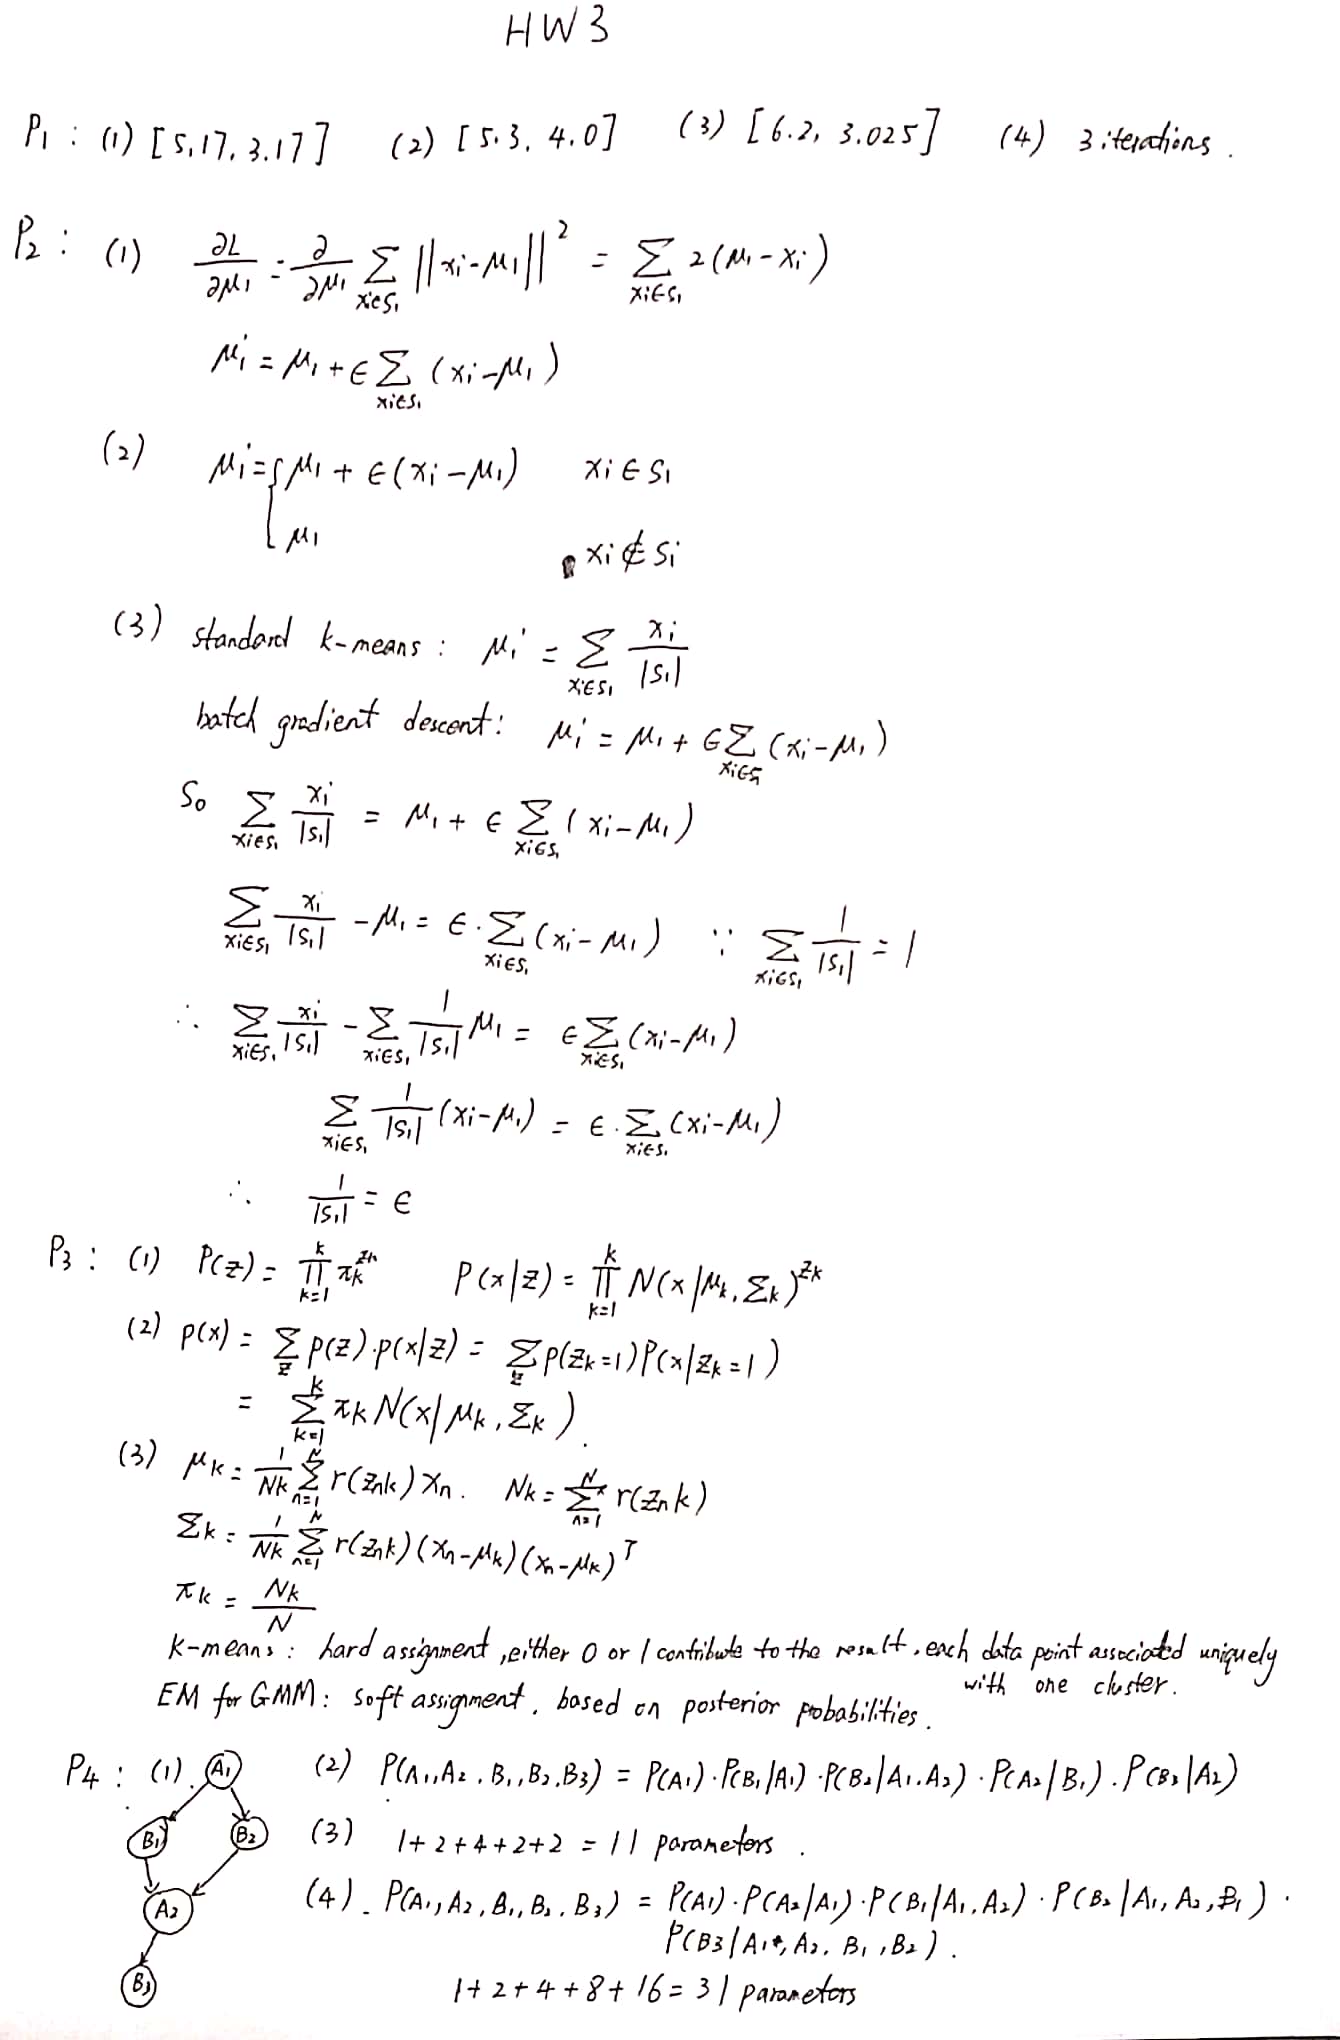 HW3
P1 : (1) [5,17, 3.17] (2) [5.3, 4.0] (3) [6.2, 3.025] (4) 3 iterations .
P2 : (1) ∂L/∂μ1 = ∂/∂μ1 Σ_{xi∈S1} ||xi-μ1||² = Σ_{xi∈S1} 2(μ1-xi)
μ1' = μ1 + ϵ Σ_{xi∈S1} (xi-μ1)
(2) μ1' = { μ1 + ϵ(xi-μ1) xi ∈ S1
μ1 xi ∉ Si
(3) standard k-means : μ1' = Σ_{xi∈S1} xi/|S1|
batch gradient descent: μ1' = μ1 + ϵ Σ_{xi∈S1} (xi-μ1)
So Σ_{xi∈S1} xi/|S1| = μ1 + ϵ Σ_{xi∈S1} (xi-μ1)
Σ_{xi∈S1} xi/|S1| - μ1 = ϵ · Σ_{xi∈S1} (xi-μ1) ∵ Σ_{xi∈S1} 1/|S1| = 1
∴ Σ_{xi∈S1} xi/|S1| - Σ_{xi∈S1} 1/|S1| μ1 = ϵ Σ_{xi∈S1} (xi-μ1)
Σ_{xi∈S1} 1/|S1| (xi-μ1) = ϵ · Σ_{xi∈S1} (xi-μ1)
∴ 1/|S1| = ϵ
P3 : (1) P(z) = ∏_{k=1}^{k} πk^{zk} P(x|z) = ∏_{k=1}^{k} N(x|μk, Σk)^{zk}
(2) p(x) = Σ_z p(z)·p(x|z) = Σ_z p(zk=1)P(x|zk=1)
= Σ_{k=1}^{k} πk N(x|μk, Σk).
(3) μk = 1/Nk Σ_{n=1}^{N} r(znk) xn. Nk = Σ_{n=1}^{N} r(znk)
Σk = 1/Nk Σ_{n=1}^{N} r(znk)(xn-μk)(xn-μk)^T
πk = Nk/N
k-means : hard assignment, either 0 or 1 contribute to the result, each data point associated uniquely
with one cluster.
EM for GMM : soft assignment, based on posterior probabilities.
P4 : (1). A1 (2) P(A1, A2, B1, B2, B3) = P(A1)·P(B1|A1)·P(B2|A1,A2)·P(A2|B1)·P(B3|A2)
B1 B2 (3) 1+2+4+2+2 = 11 parameters .
A2 (4). P(A1, A2, B1, B2, B3) = P(A1)·P(A2|A1)·P(B1|A1,A2)·P(B2|A1, A2, B1) ·
P(B3|A1, A2, B1, B2).
B3 1+2+4+8+16 = 31 parameters